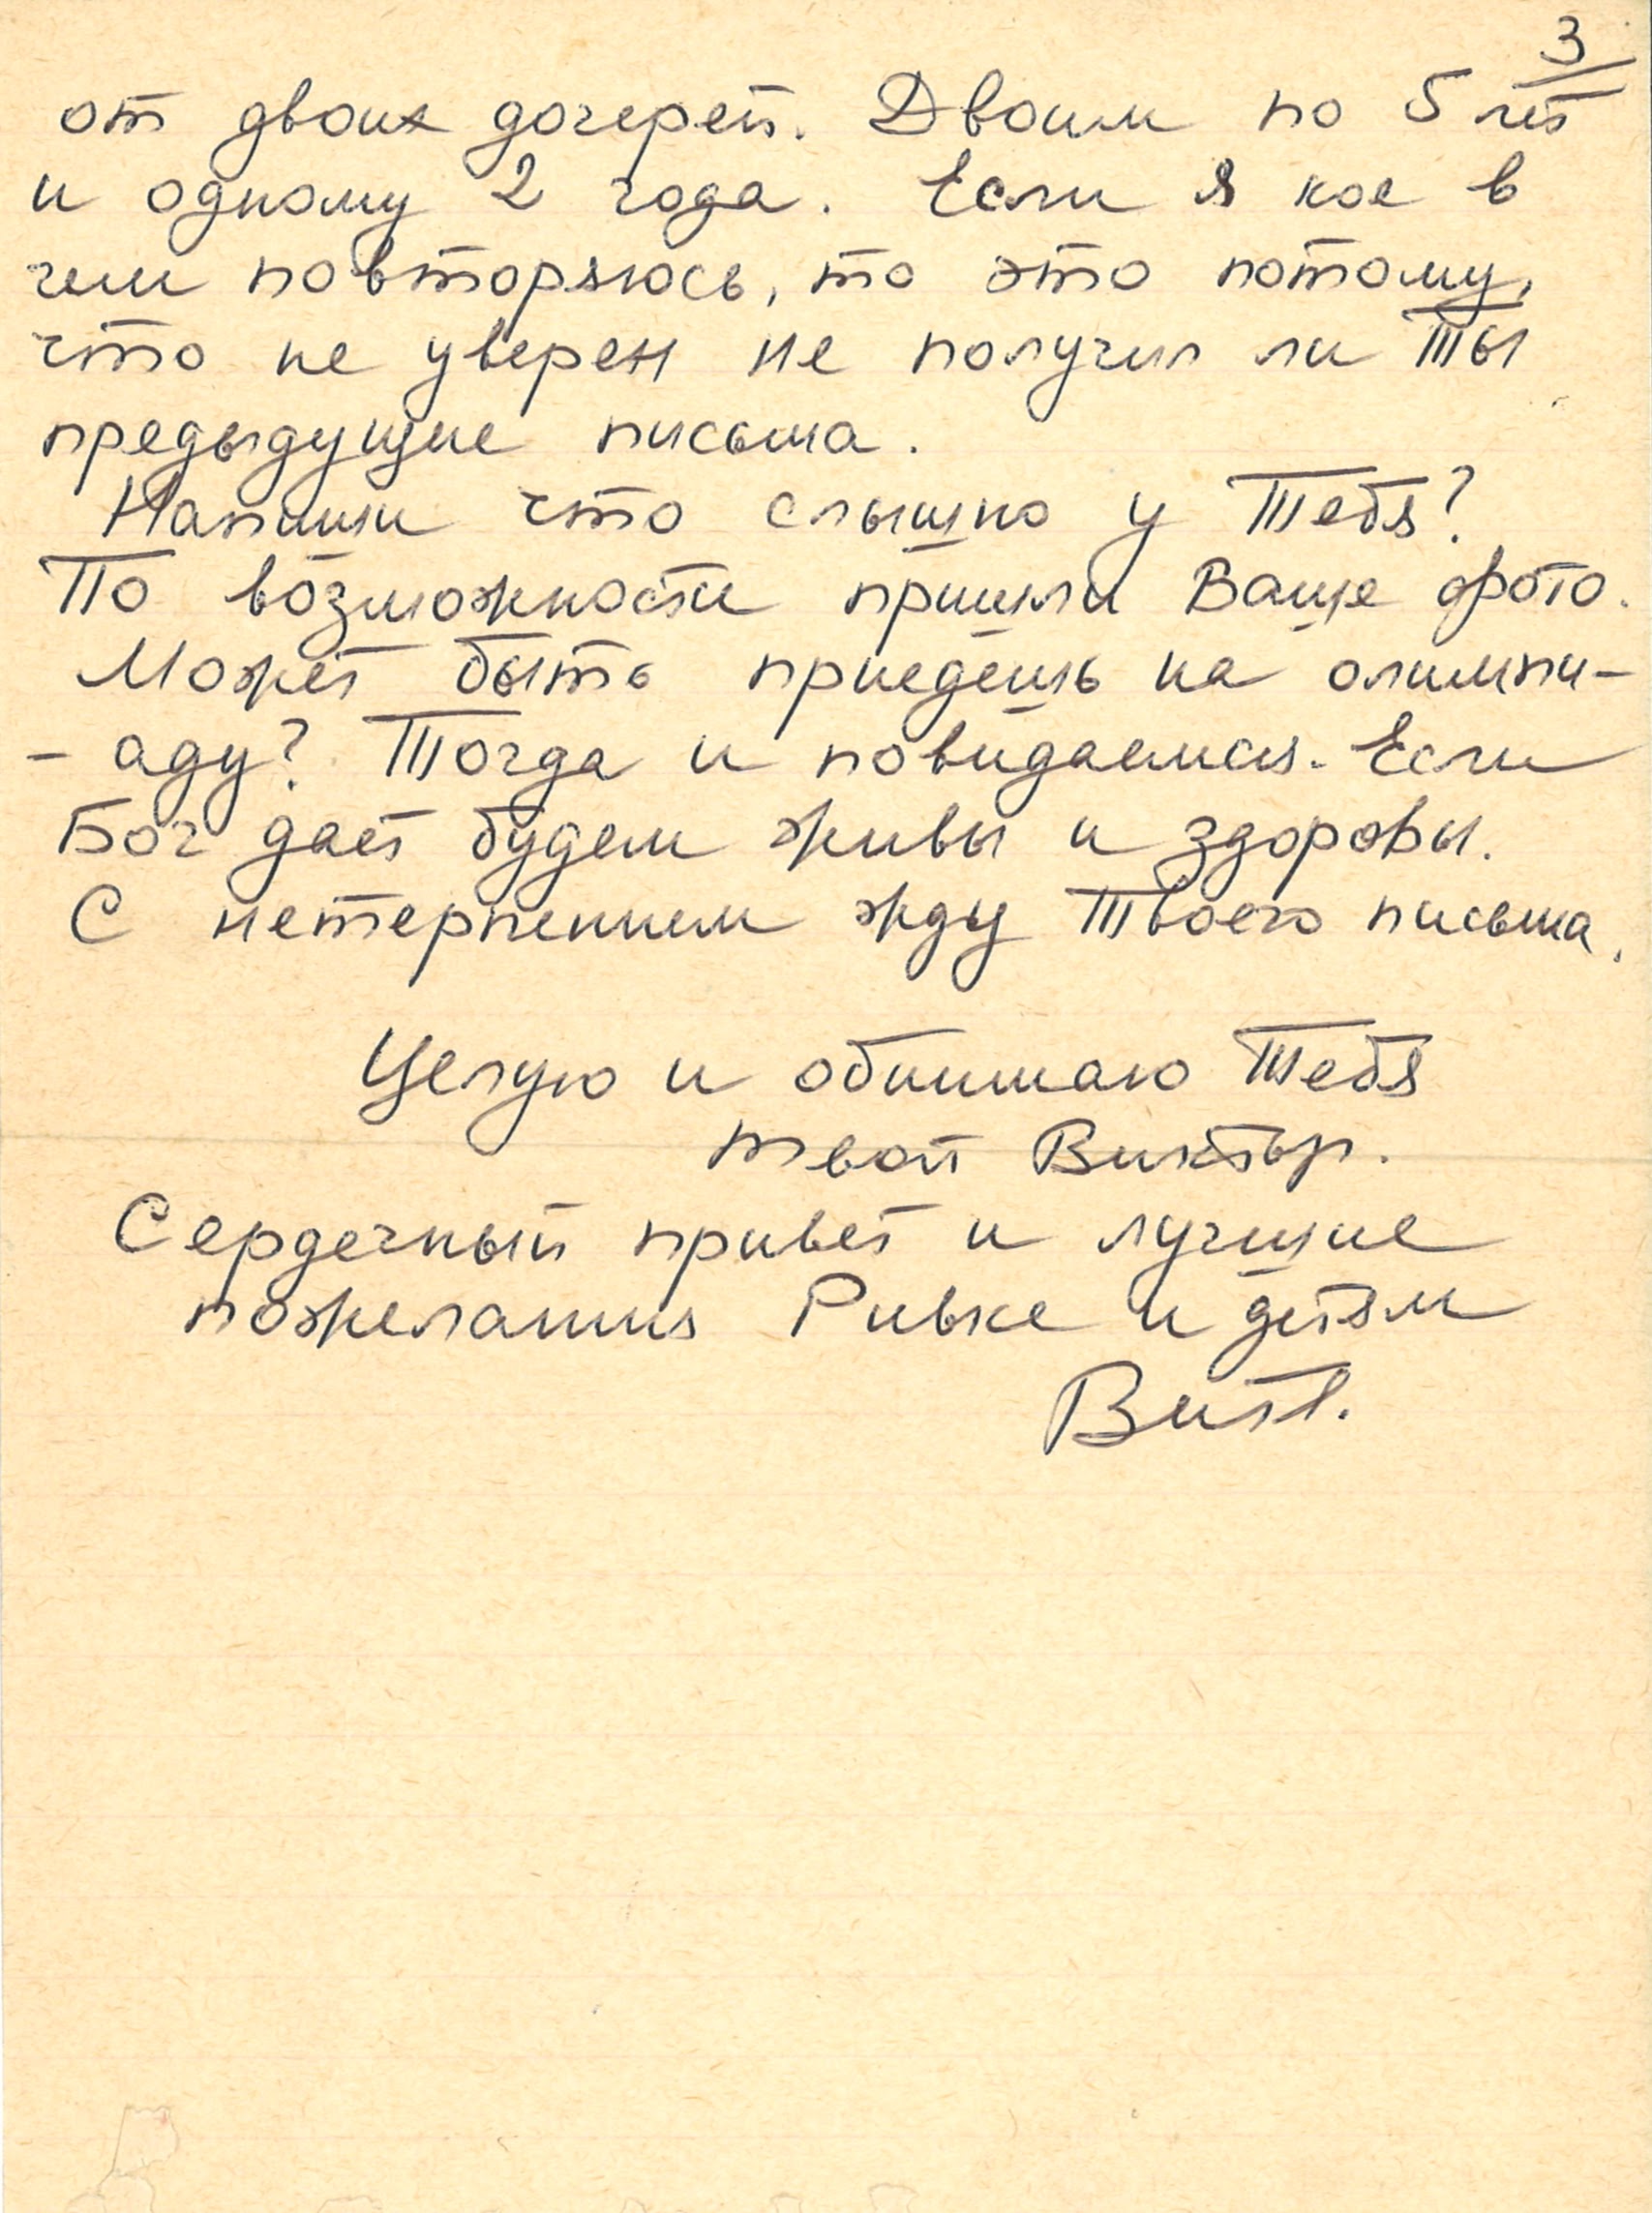 3
от двоих дочерей. Двоим по 5 лет
и одному 2 года. Если я кое в
чем повторяюсь, то это потому,
что не уверен не получил ли Ты
предыдущие письма.
Напиши что слышно у Тебя?
По возможности пришли Ваше фото.
Может быть приедешь на олимпи-
- аду? Тогда и повидаемся. Если
Бог даст будем живы и здоровы.
С нетерпением жду Твоего письма.
Целую и обнимаю Тебя
твой Виктор.
Сердечный привет и лучшие
пожелания Ривке и детям